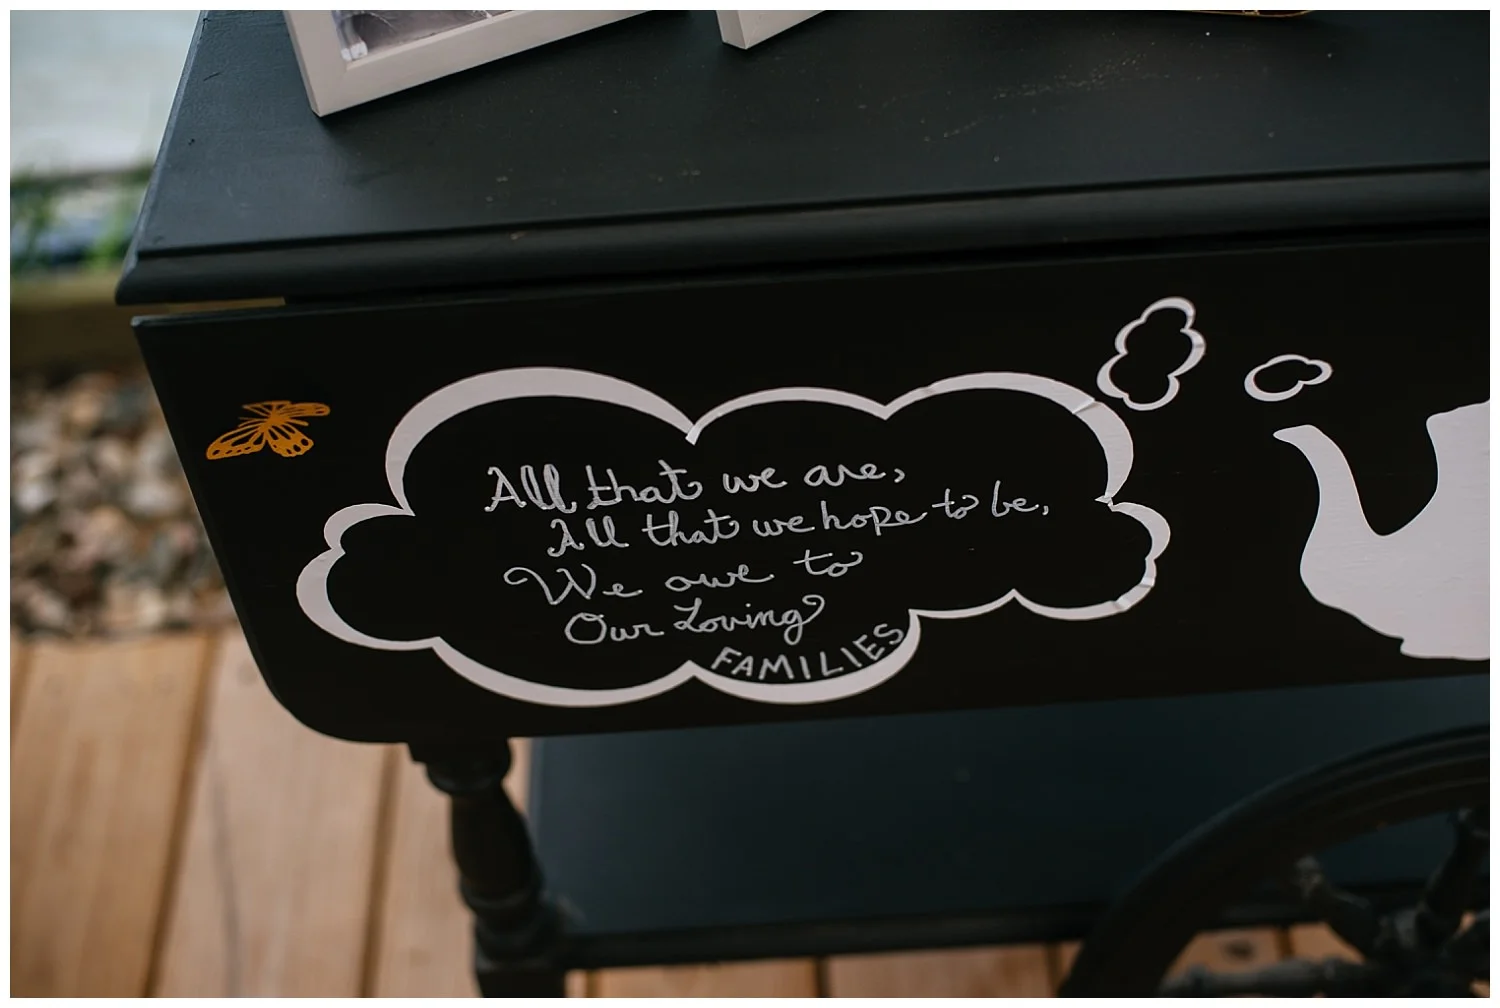 All that we are,
All that we hope to be,
We owe to
Our Loving
FAMILIES